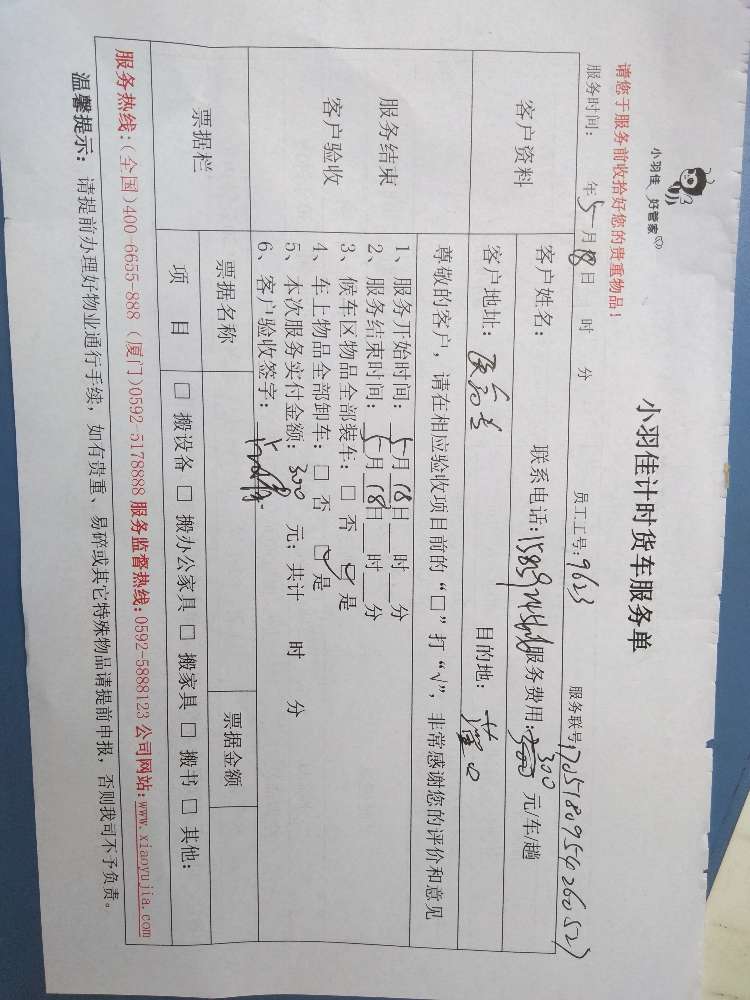 小羽佳 好管家
小羽佳计时货车服务单
请您于服务前收拾好您的贵重物品!
服务时间: 年5月18日 时 分 员工工号:9623 服务联号:170518095426052
客户资料
客户姓名: 联系电话: 服务费用:300 元/车/趟
客户地址: 目的地:
服务结束
客户验收
尊敬的客户,请在相应验收项目前的“□”打“√”,非常感谢您的评价和意见
1、服务开始时间:5月18日 时 分
2、服务结束时间:5月18日 时 分
3、候车区物品全部装车:□ 否 ☑ 是
4、车上物品全部卸车:□ 否 ☑ 是
5、本次服务实付金额:300 元;共计 时 分
6、客户验收签字:
票据栏
票据名称 票据金额
项 目 □ 搬设备 □ 搬办公家具 □ 搬家具 □ 搬书 □ 其他:
服务热线:(全国)400-6655-888 (厦门)0592-5178888 服务监督热线:0592-5888123 公司网站:www.xiaoyujia.com
温馨提示: 请提前办理好物业通行手续,如有贵重、易碎或其它特殊物品请提前申报,否则我司不予负责。